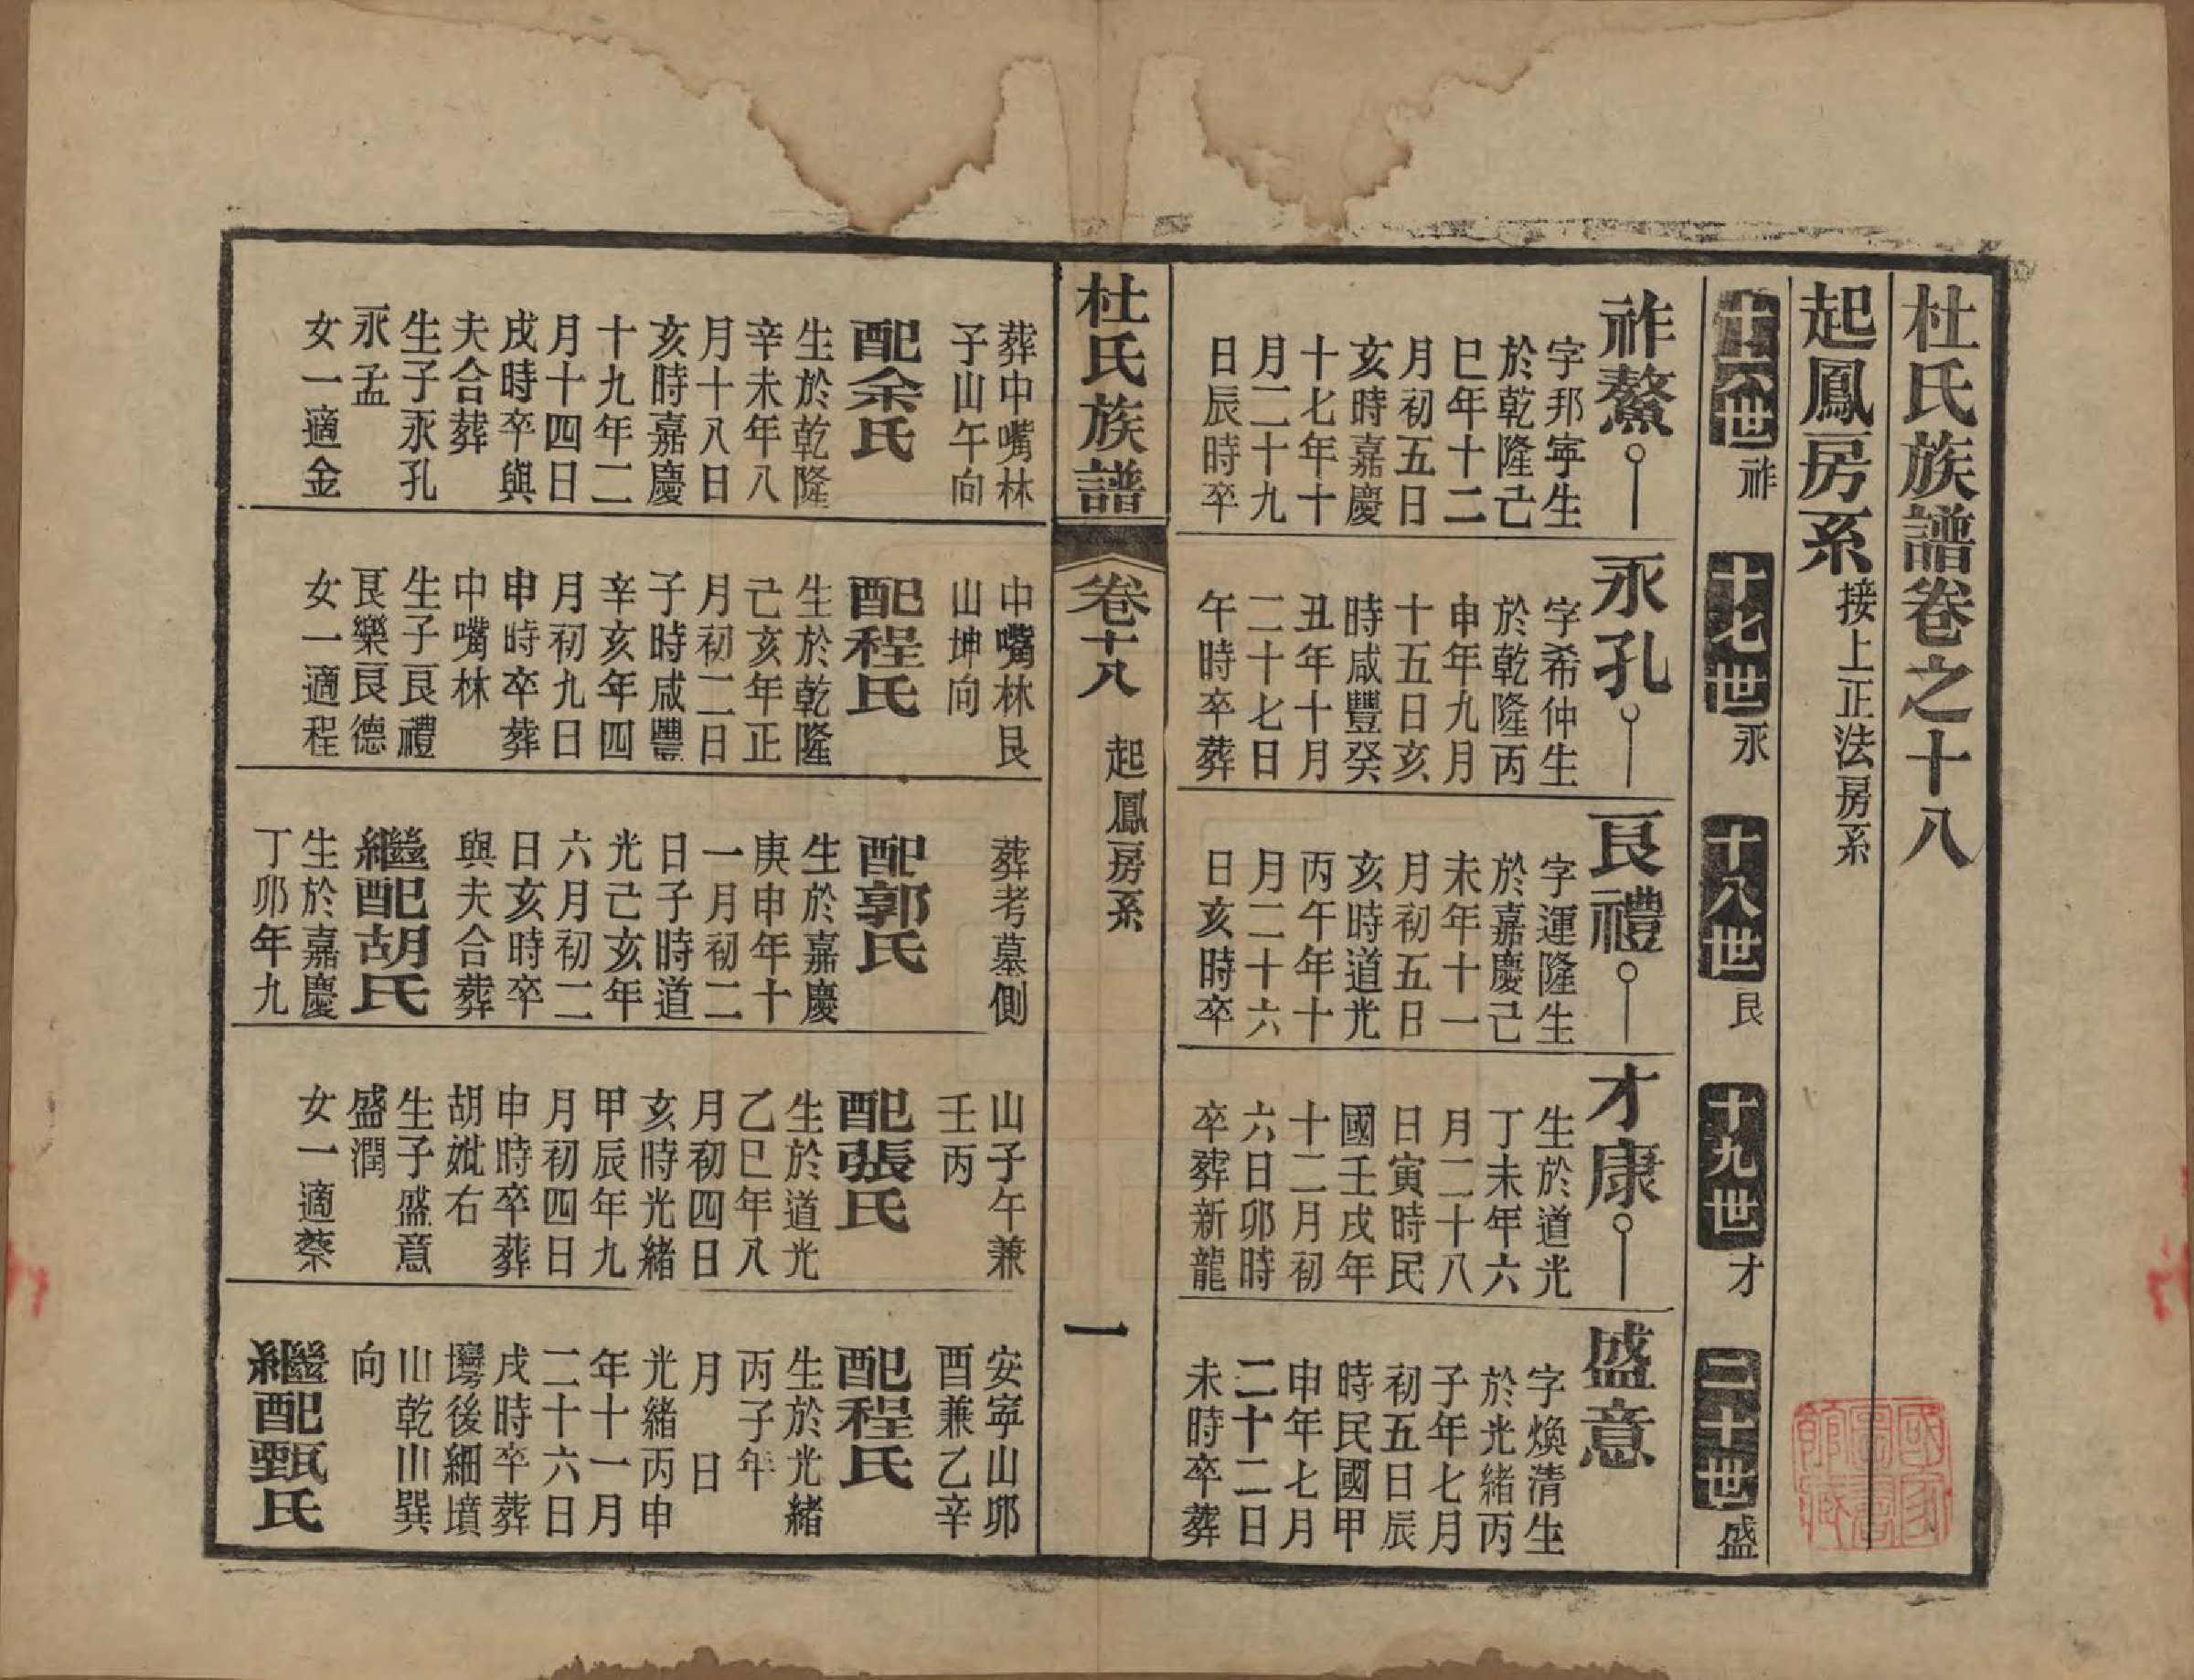 杜氏族譜卷之十八
起鳳房系接上正法房系
十六世祚
十七世永
十八世良
十九世才
二十世盛
祚鰲
字邦寧生
於乾隆己
巳年十二
月初五日
亥時嘉慶
十七年十
月二十九
日辰時卒
葬中嘴林
子山午向
配余氏
生於乾隆
辛未年八
月十八日
亥時嘉慶
十九年二
月十四日
戌時卒與
夫合葬
生子永孔
永孟
女一適金
永孔
字希仲生
於乾隆丙
申年九月
十五日亥
時咸豐癸
丑年十月
二十七日
午時卒葬
中嘴林艮
山坤向
配程氏
生於乾隆
己亥年正
月初二日
子時咸豐
辛亥年四
月初九日
申時卒葬
中嘴林
生子良禮
良樂良德
女一適程
良禮
字運隆生
於嘉慶己
未年十一
月初五日
亥時道光
丙午年十
月二十六
日亥時卒
葬考墓側
配郭氏
生於嘉慶
庚申年十
一月初二
日子時道
光己亥年
六月初二
日亥時卒
與夫合葬
繼配胡氏
生於嘉慶
丁卯年九
才康
生於道光
丁未年六
月二十八
日寅時民
國壬戌年
十二月初
六日卯時
卒葬新龍
山子午兼
壬丙
配張氏
生於道光
乙巳年八
月初四日
亥時光緒
甲辰年九
月初四日
申時卒葬
胡妣右
生子盛意
盛潤
女一適蔡
盛意
字煥清生
於光緒丙
子年七月
初五日辰
時民國甲
申年七月
二十二日
未時卒葬
安寧山卯
酉兼乙辛
配程氏
生於光緒
丙子年
月　日
光緒丙申
年十一月
二十六日
戌時卒葬
塆後細墳
山乾山巽
向
繼配甄氏
杜氏族譜
卷十八
起鳳房系
一
國家圖書館藏